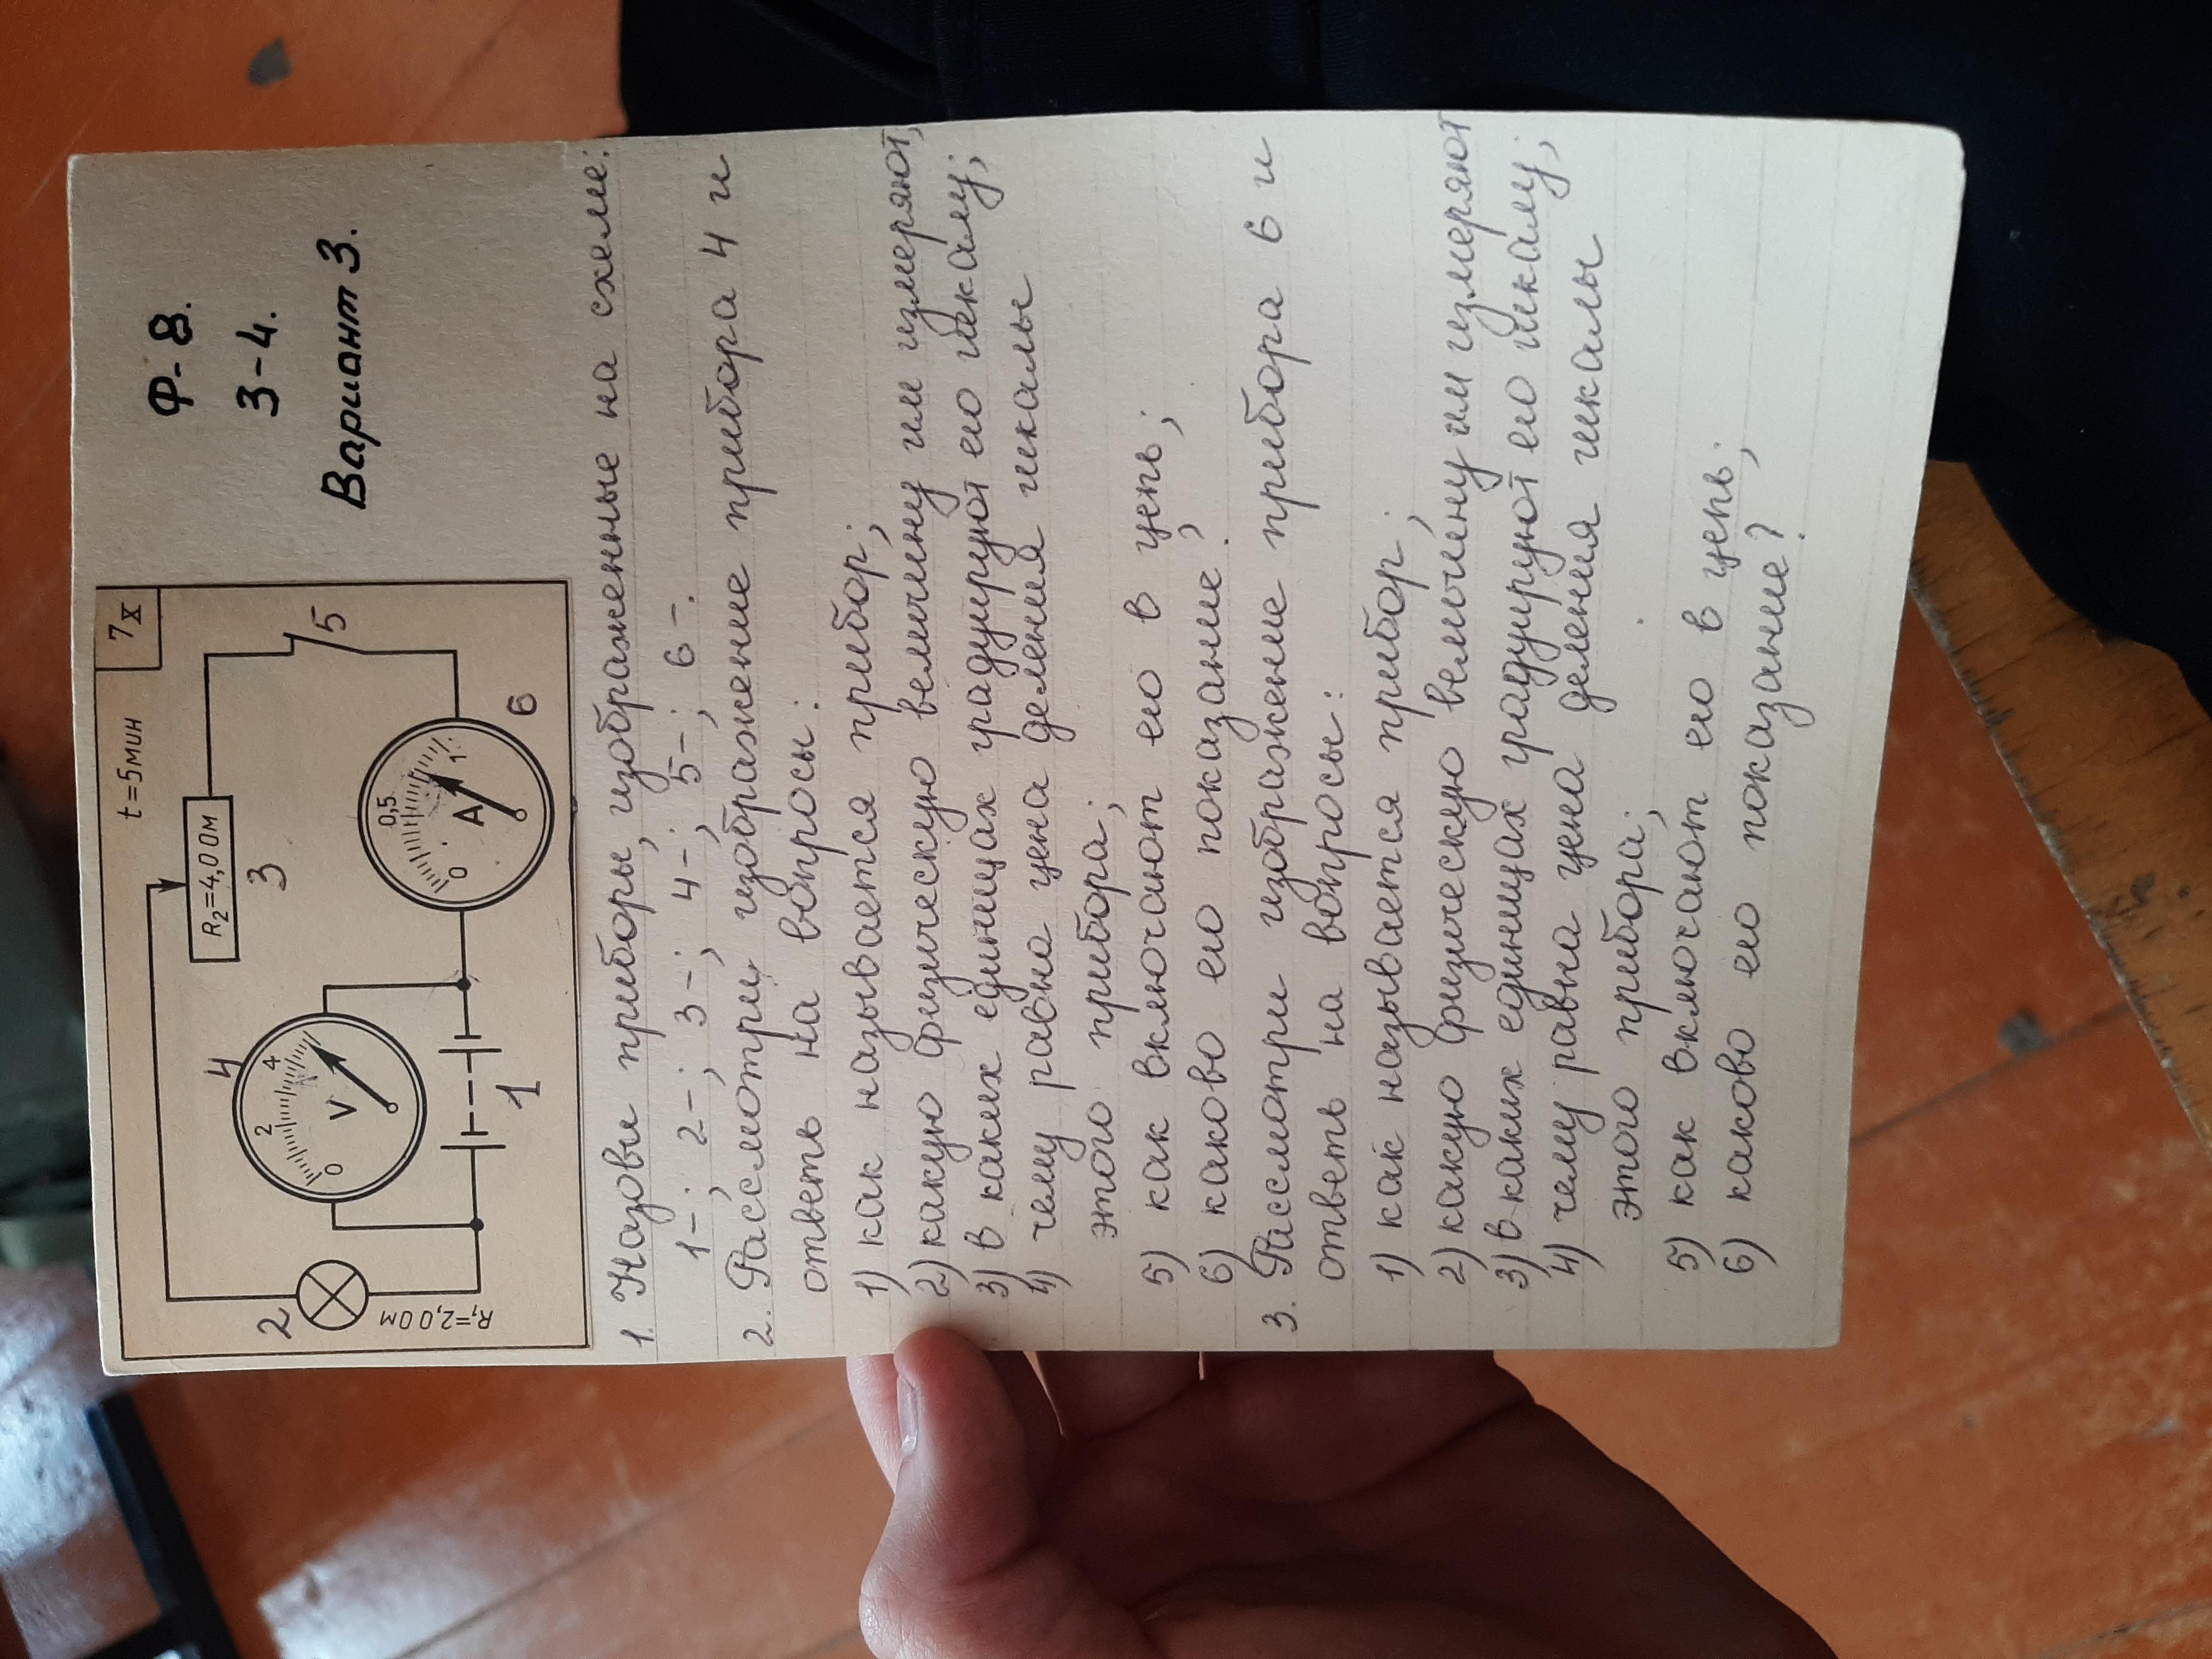 Ф-8.
3-4.
Вариант 3.
t=5мин
7х
R₂=4,0 Ом
3
5
4
0 2 4
V
0 0,5 1
A
6
2
R₁=2,0 Ом
1
1. Назови приборы, изображенные на схеме:
1-; 2-; 3-; 4-; 5-; 6-.
2. Рассмотри изображение прибора 4 и
ответь на вопросы:
1) как называется прибор;
2) какую физическую величину им измеряют;
3) в каких единицах градуируют его шкалу;
4) чему равна цена деления шкалы
этого прибора;
5) как включают его в цепь;
6) каково его показание.
3. Рассмотри изображение прибора 6 и
ответь на вопросы:
1) как называется прибор;
2) какую физическую величину им измеряют
3) в каких единицах градуируют его шкалу;
4) чему равна цена деления шкалы
этого прибора;
5) как включают его в цепь;
6) каково его показание?